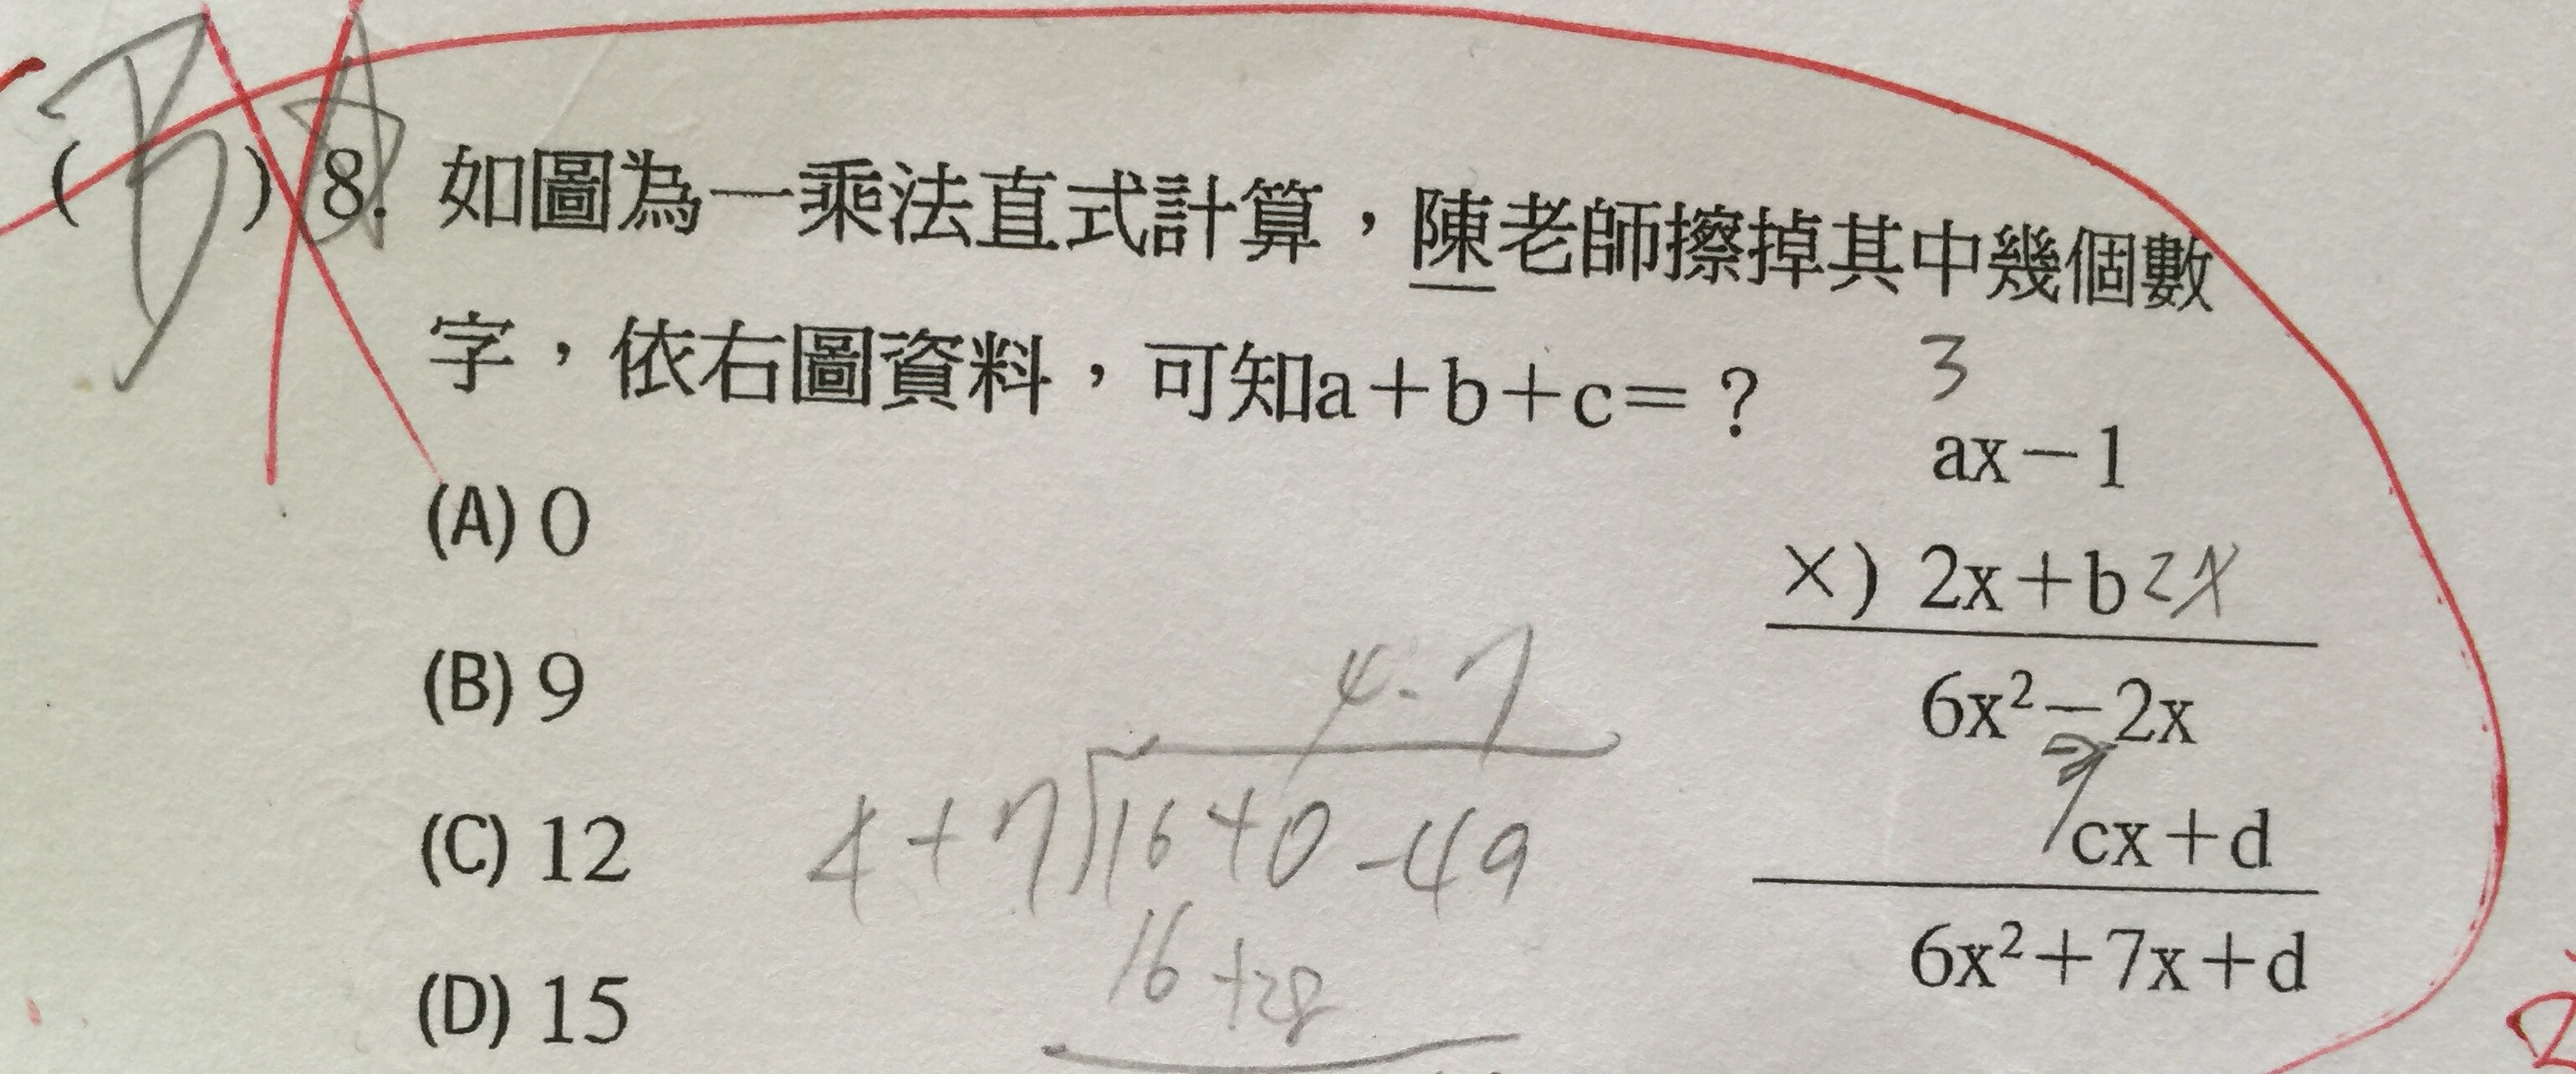 (B) 8. 如圖為一乘法直式計算，陳老師擦掉其中幾個數
字，依右圖資料，可知a＋b＋c＝？
3
ax－1
×) 2x＋b 2x
6x²－2x
cx＋d
6x²＋7x＋d
(A) 0
(B) 9
(C) 12
(D) 15
4-7
4+7)16+0-49
16+28